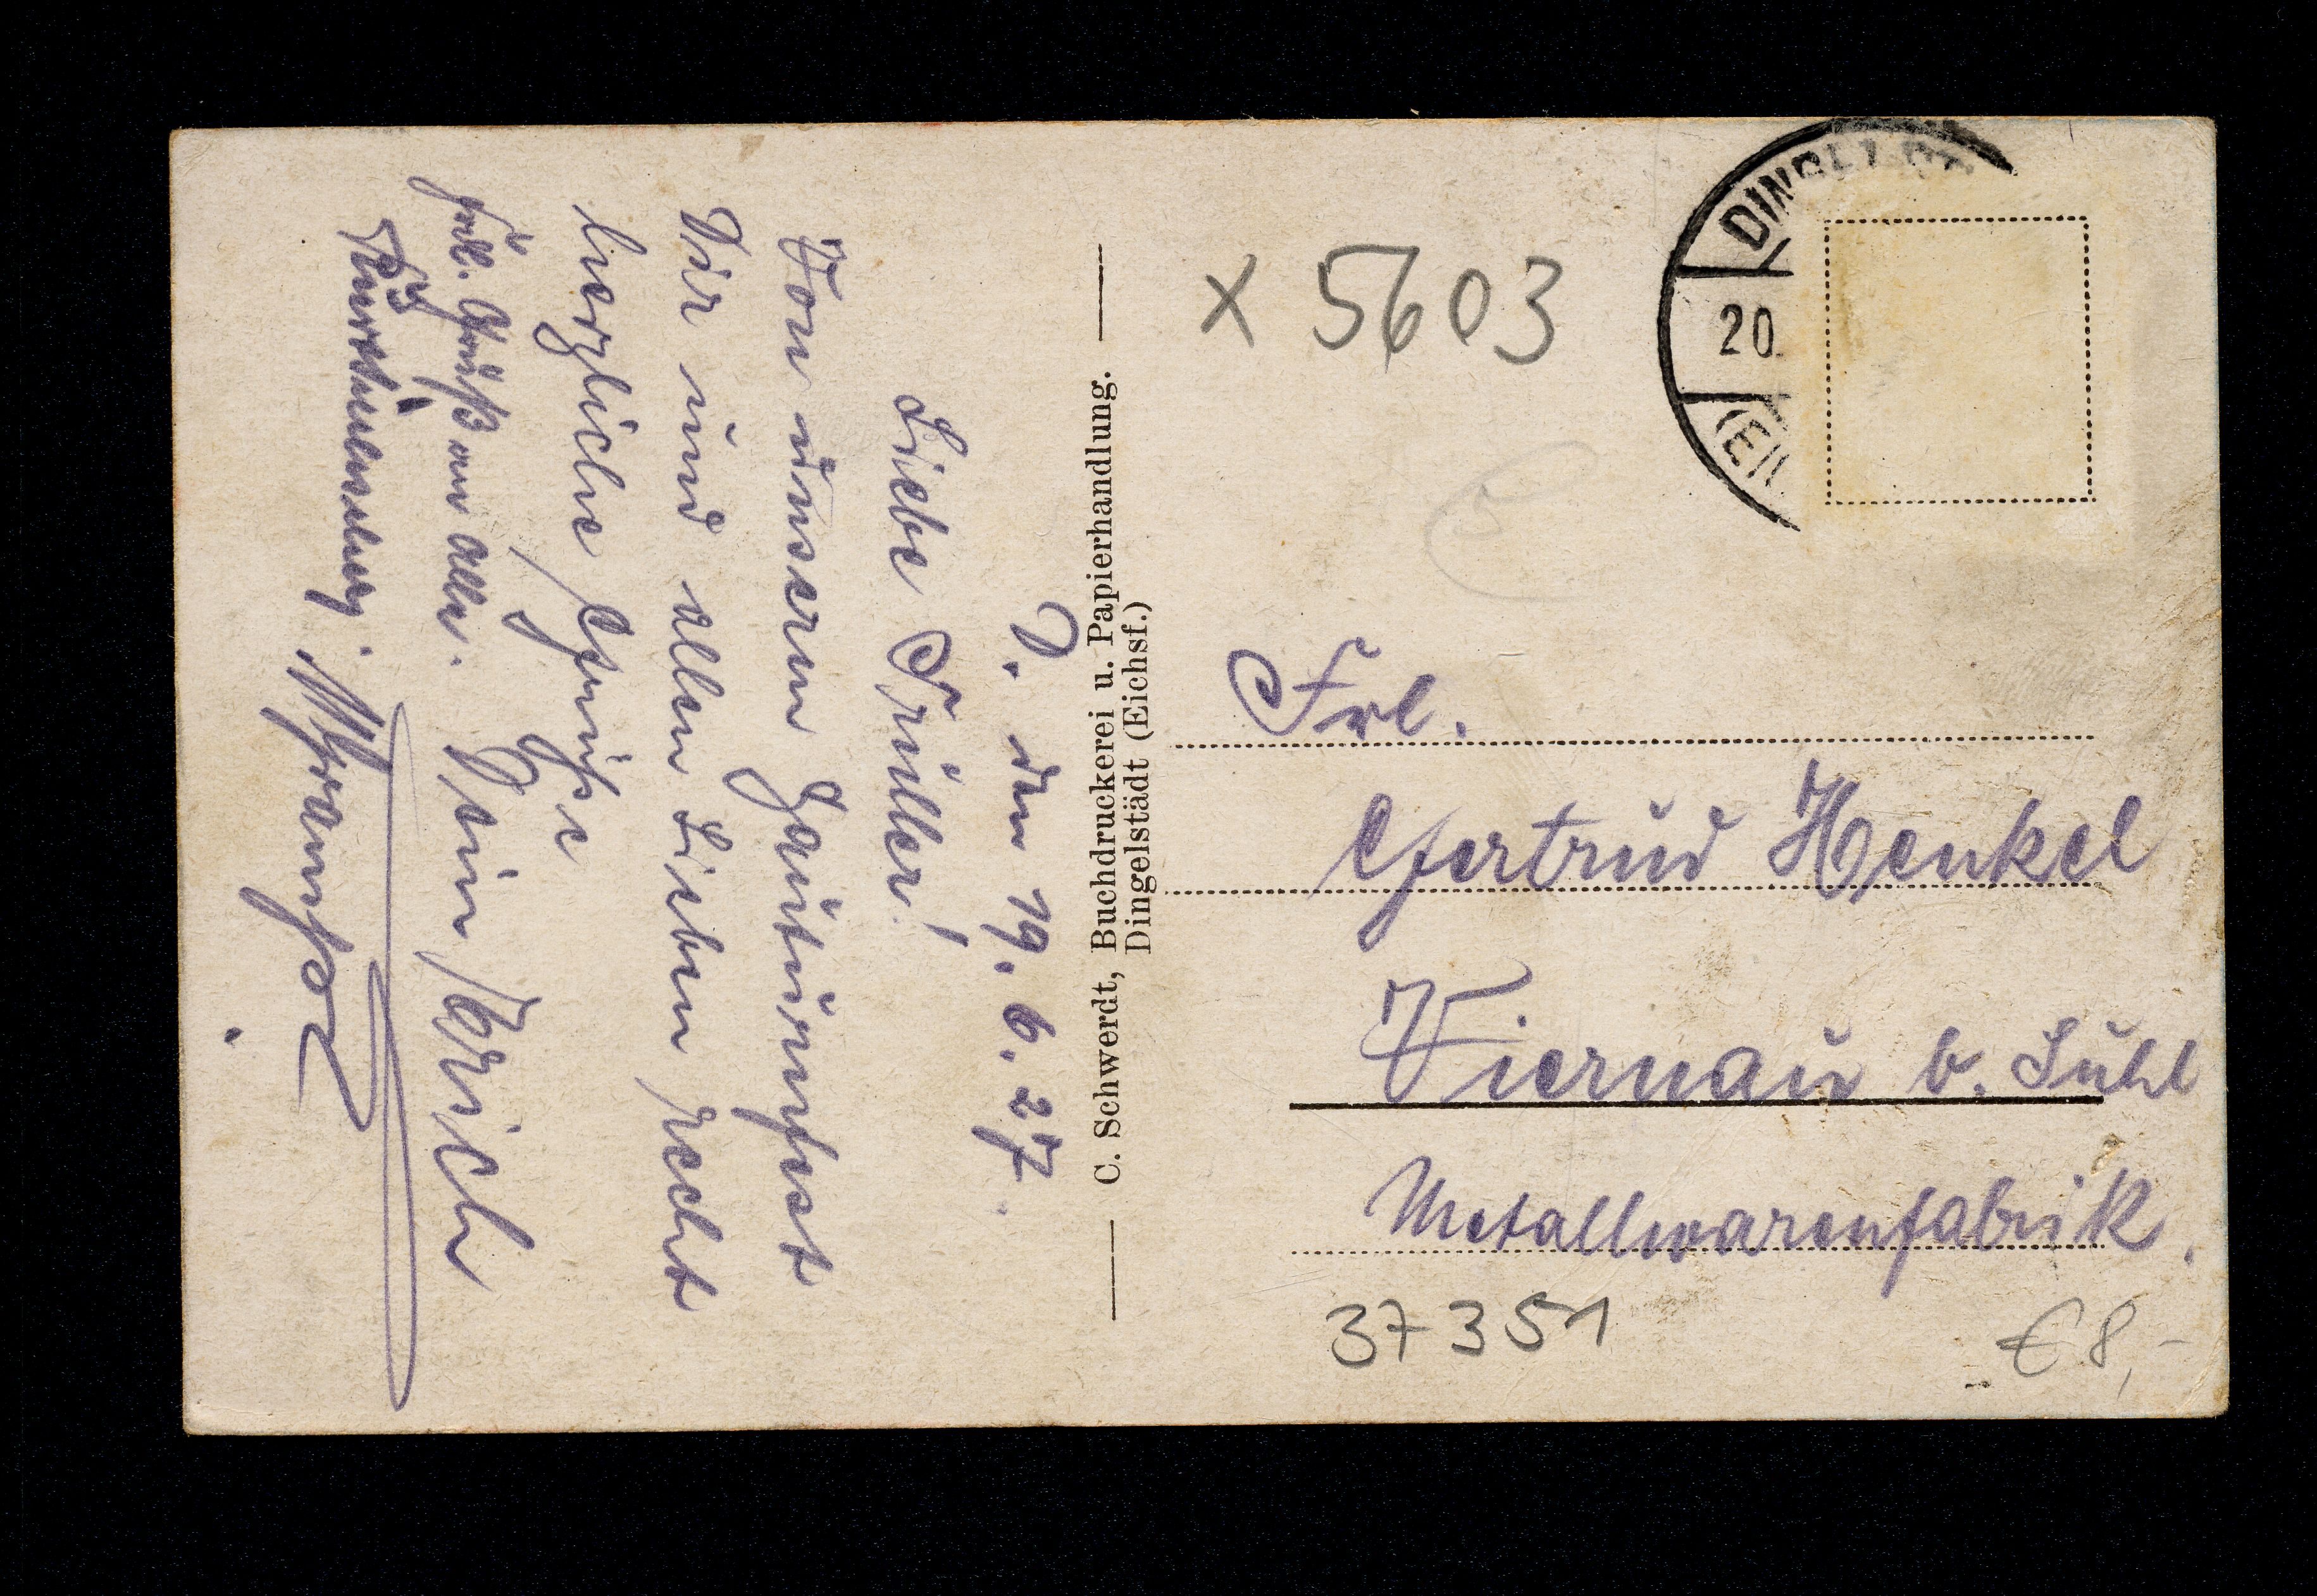 D. den 19.6.27.
Liebe Trüller!
Von unserm Gauturnfest
Dir und allen Lieben recht
herzliche Grüße
Dein Erich
frdl. Gruß an alle.
C. Schwerdt, Buchdruckerei u. Papierhandlung.
Dingelstädt (Eichsf.)
x 5603
20.
Frl.
Gertrud Henkel
Viernau b. Suhl
Metallwarenfabrik.
37351
€ 8,-